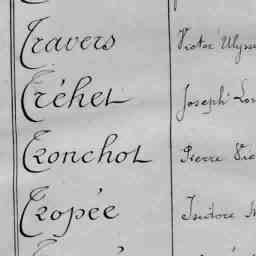 Travers Victor Ulysse
Tréhet Joseph
Tronchot Pierre
Tropée Isidore